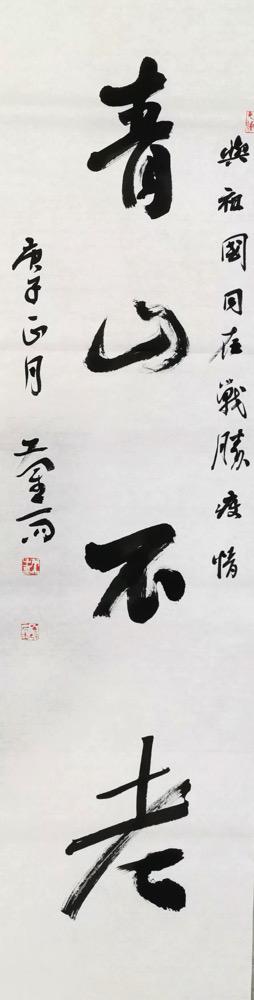 與祖國同在戰勝疫情
青山不老
庚子正月